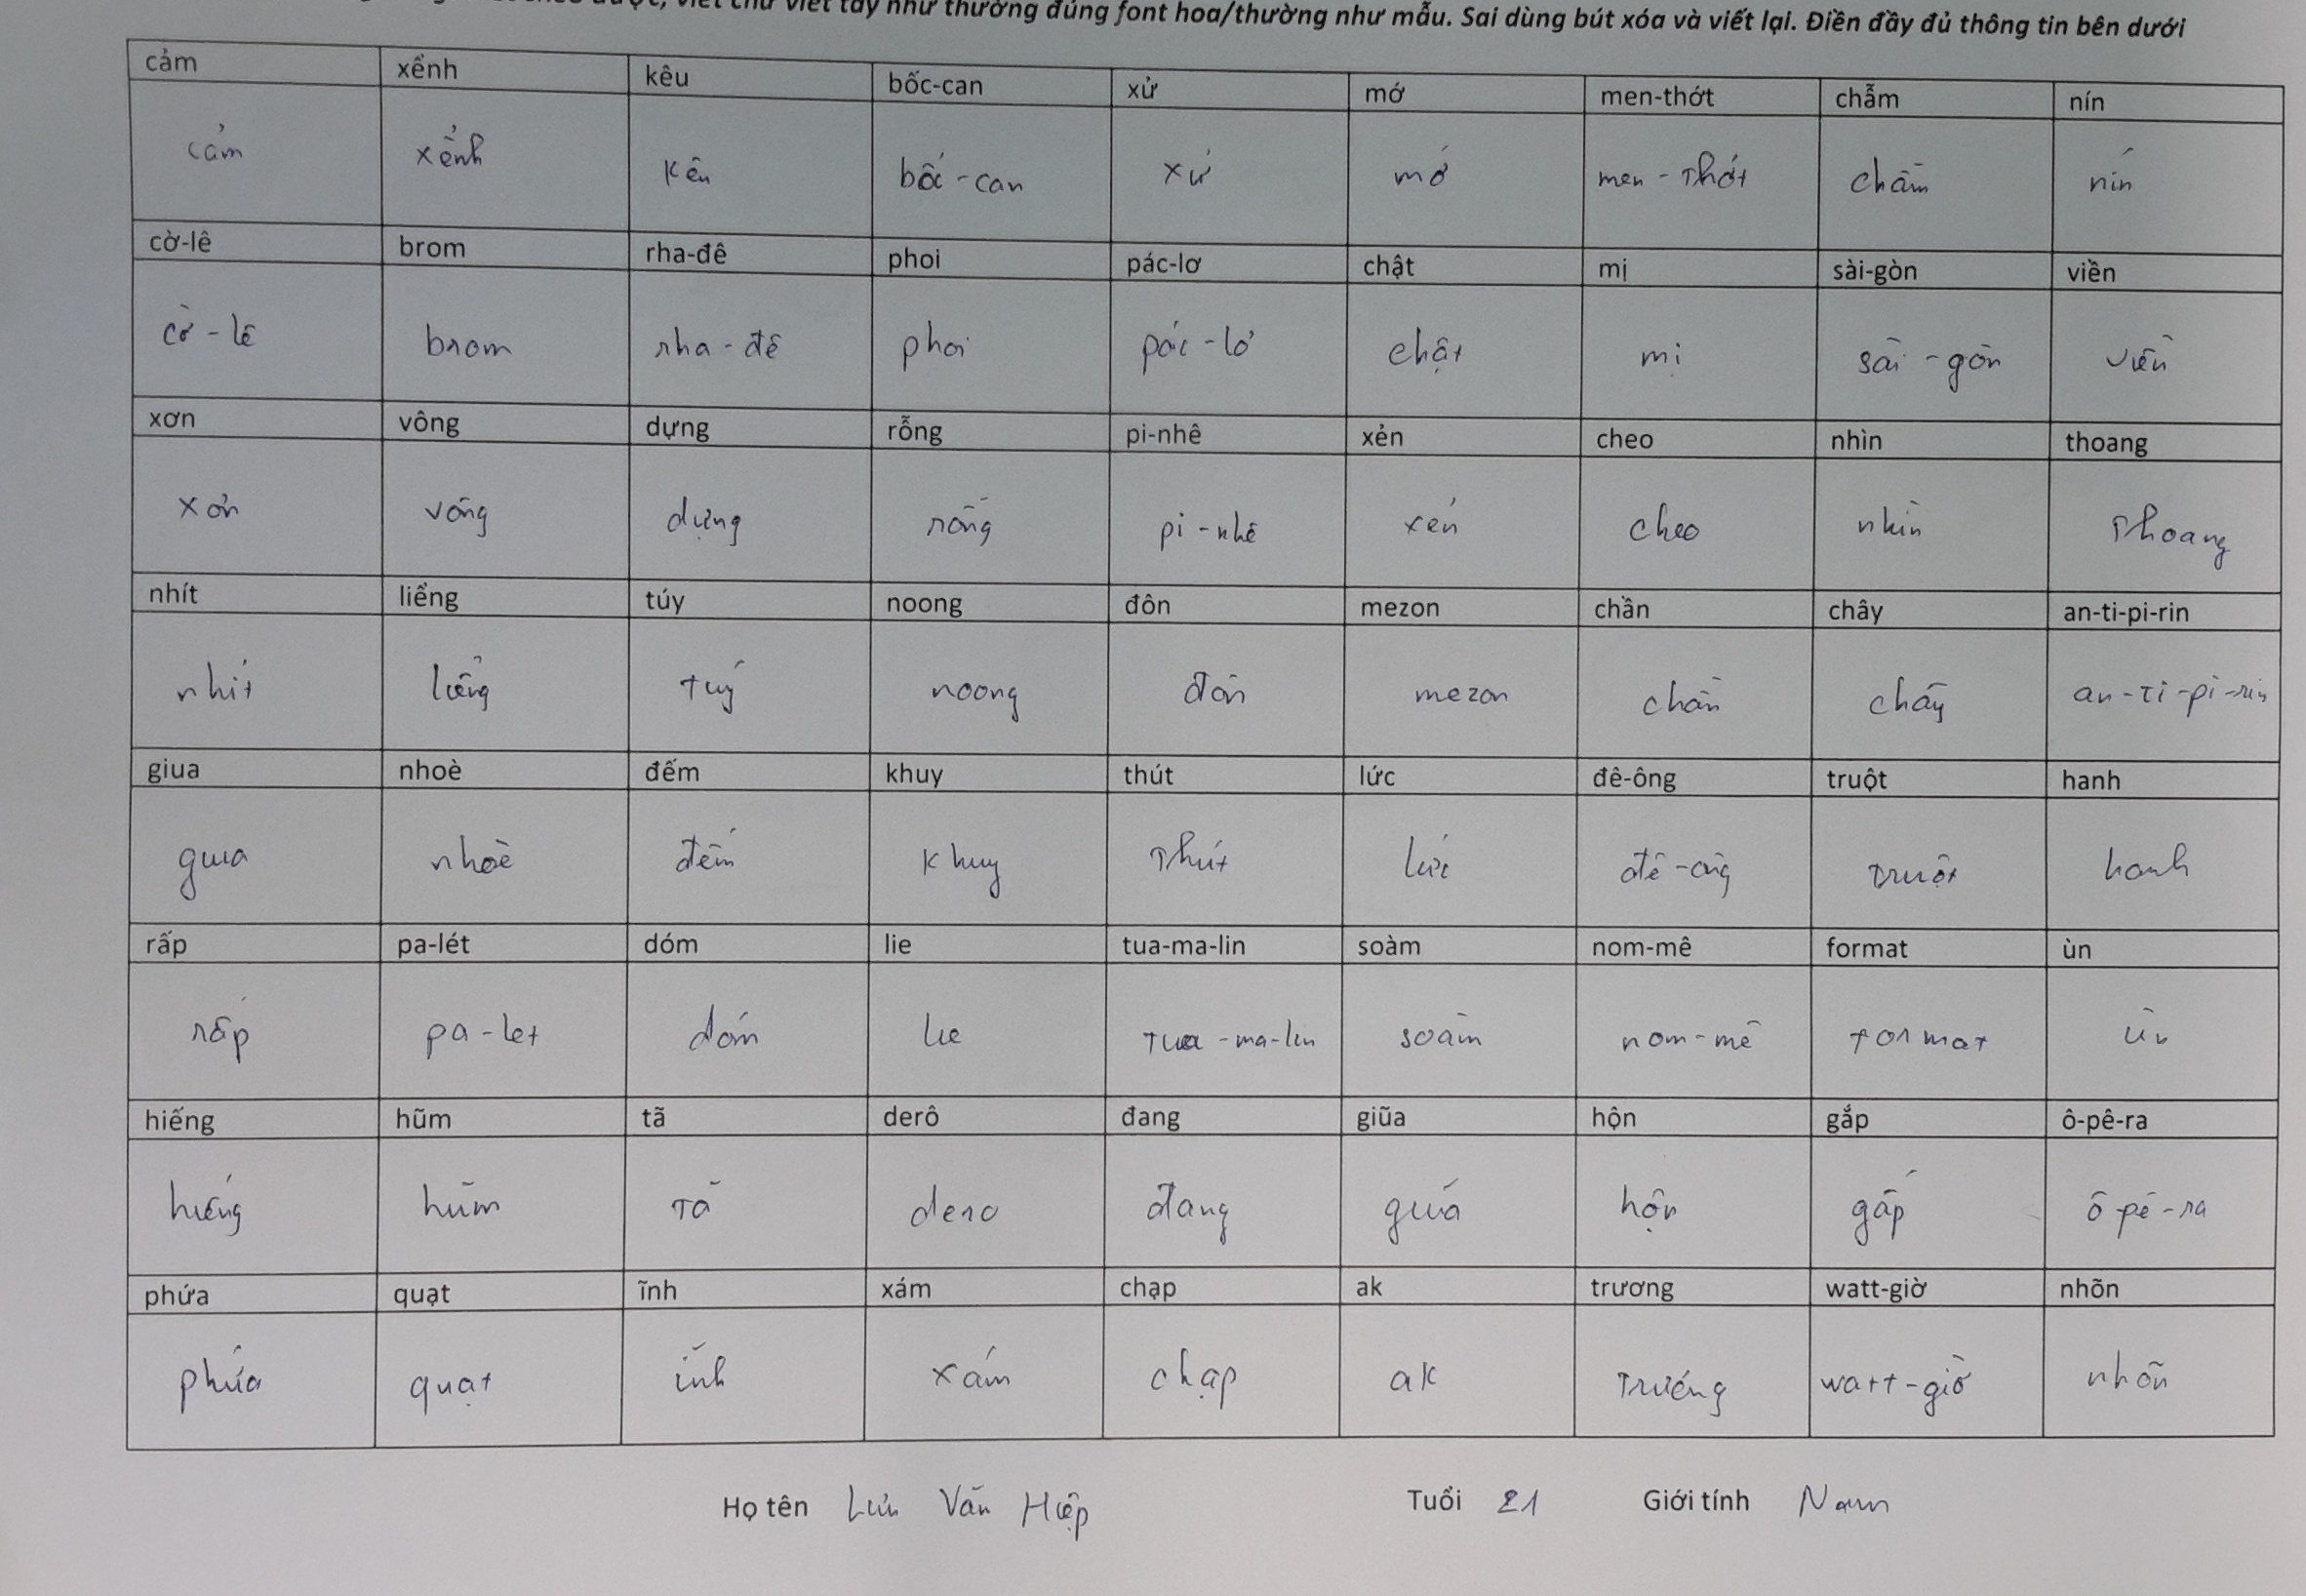 viết chữ viết tay như thường đúng font hoa/thường như mẫu. Sai dùng bút xóa và viết lại. Điền đầy đủ thông tin bên dưới
cảm xểnh kêu bốc-can xử mớ men-thớt chẫm nín
cảm xểnh kêu bốc-can xử mớ men-thớt chẫm nín
cờ-lê brom rha-đê phoi pác-lơ chật mị sài-gòn viền
cờ-lê brom rha-đê phoi pác-lơ chật mị sài-gòn viền
xơn vông dựng rỗng pi-nhê xẻn cheo nhìn thoang
xơn vông dựng rỗng pi-nhê xẻn cheo nhìn thoang
nhít liểng túy noong đôn mezon chần chây an-ti-pi-rin
nhít liểng túy noong đôn mezon chần chây an-ti-pi-rin
giua nhoè đếm khuy thút lức đê-ông truột hanh
giua nhoè đếm khuy thút lức đê-ông truột hanh
rấp pa-lét dóm lie tua-ma-lin soàm nom-mê format ùn
rấp pa-let dóm lie tua-ma-lin soàm nom-mê format ùn
hiếng hũm tã derô đang giũa hộn gắp ô-pê-ra
hiếng hũm tã dero đang giũa hộn gắp ô-pê-ra
phứa quạt ĩnh xám chạp ak trương watt-giờ nhõn
phứa quạt ĩnh xám chạp ak trương watt-giờ nhõn
Họ tên Lưu Văn Hiệp Tuổi 21 Giới tính Nam